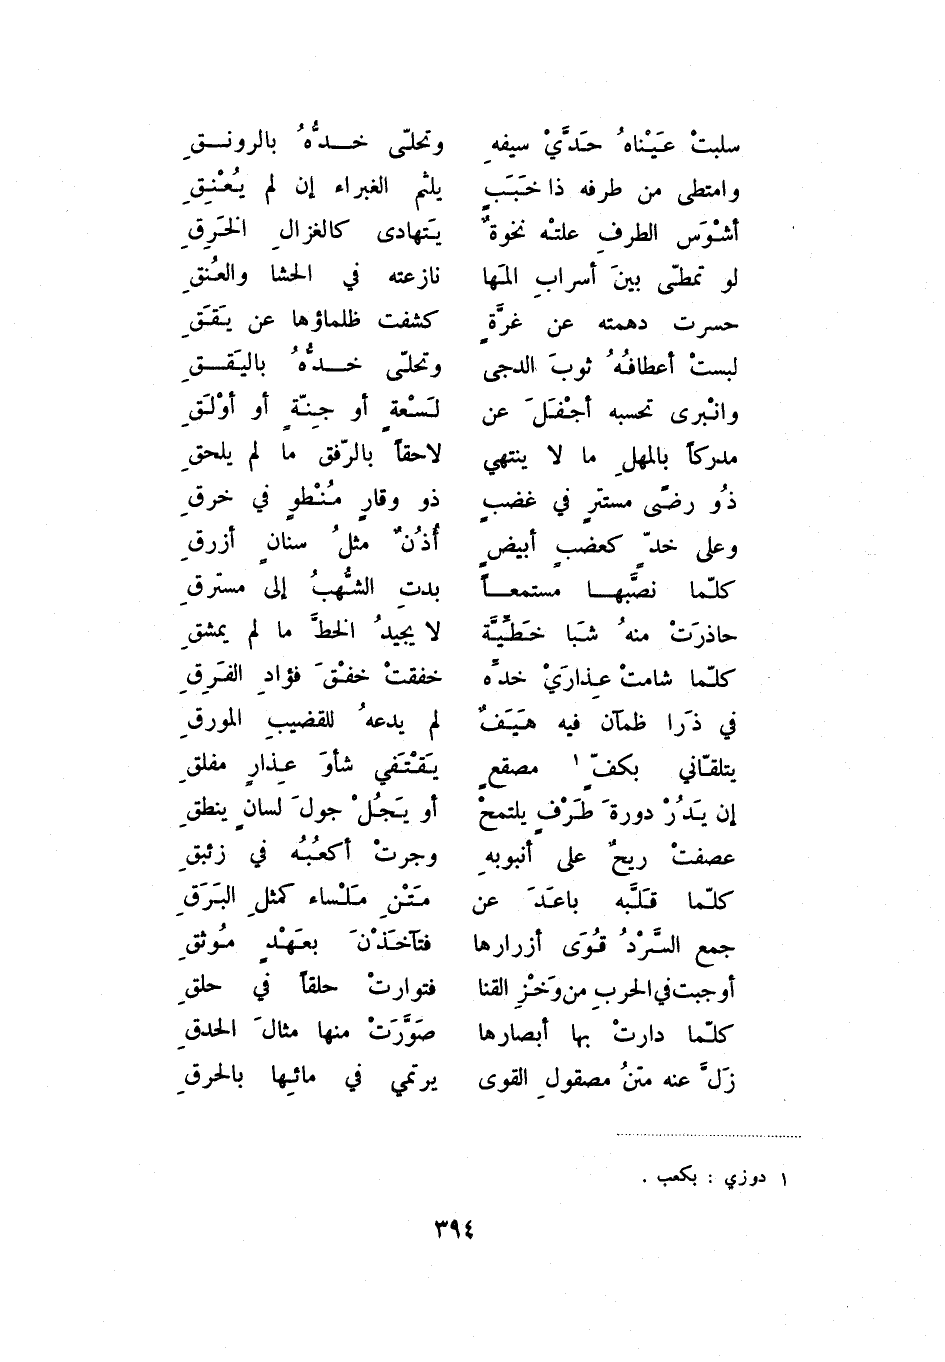 سلبتْ عَيْناهُ حَدَّيْ سيفهِ وتحلّى خــدُّهُ بالرونــقِ
وامتطى من طرفه ذا خَبَبٍ يلثم الغبراء إن لم يُعْنِقِ
أشْوَس الطرفِ علتْه نخوةٌ يَتهادى كالغزالِ الخَرِقِ
لو تمطّى بينَ أسرابِ المَها نازعته في الحشا والعُنقِ
حسرت دهمته عن غرَّةٍ كشفت ظلماؤها عن يَقَقِ
لبستْ أعطافُهُ ثوبَ الدجى وتحلّى خــدُّهُ باليَقــقِ
وانْبرى تحسبه أجْفَلَ عن لَسْعةٍ أو جِنّةٍ أو أوْلَقِ
مدركاً بالمهلِ ما لا ينتهي لاحقاً بالرّفق ما لم يلحقِ
ذُو رضىً مستترٍ في غضبٍ ذو وقارٍ مُنْطوٍ في خرقِ
وعلى خدٍّ كعضبٍ أبيضٍ أُذُنٌ مثلُ سنانٍ أزرقِ
كلّما نصَّبهــا مستمعــاً بدتِ الشُّهبُ إلى مسترقِ
حاذرَتْ منهُ شَبَا خَطِّيَّةً لا يجيدُ الخطَّ ما لم يمشقِ
كلّما شامتْ عِذارَيْ خدِّه خفقتْ خفْقَ فؤادِ الفَرِقِ
في ذَرا ظمآن فيه هَيَفٌ لم يدعهُ للقضيبِ المورقِ
يتلقّاني بكفٍّ ١ مصقعٍ يَقْتَفي شأوَ عِذارٍ مفلقِ
إن يَدُرْ دورةَ طَرْفٍ يلتمحْ أو يَجُلْ جولَ لسانٍ ينطقِ
عصفتْ ريحٌ على أنبوبهِ وجرتْ أكعُبُه في زئبقِ
كلّما قلَّبه باعَدَ عن مَتْنِ مَلْساء كمثلِ البَرَقِ
جمع السَّرْدُ قُوَى أزرارها فتآخَذْنَ بعَهْدٍ مُوثقِ
أوجبت في الحربِ من وَخْزِ القنا فتوارتْ حلقاً في حلقِ
كلّما دارتْ بها أبصارها صَوَّرَتْ منها مثالَ الحدقِ
زَلَّ عنه متنُ مصقولِ القوى يرتمي في مائِها بالحرقِ
١ دوزي : بكعب .
٣٩٤